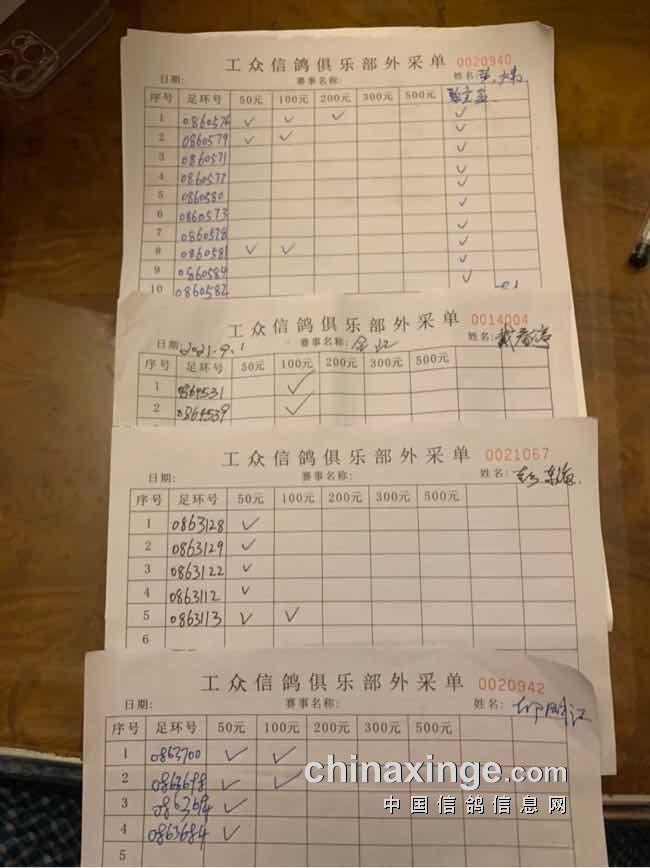 工众信鸽俱乐部外采单 0020940
日期: 赛事名称: 姓名:
序号 足环号 50元 100元 200元 300元 500元
1 0860576 ✓ ✓ ✓ ✓
2 0860579 ✓ ✓ ✓
3 0860571 ✓
4 0860577 ✓
5 0860580 ✓
6 0860573
7 0860578 ✓
8 0860581 ✓ ✓ ✓
9 0860584 ✓
10 0860582 ✓
工众信鸽俱乐部外采单 0014004
日期: 2021.9.1 赛事名称: 姓名:
序号 足环号 50元 100元 200元 300元 500元
1 0864531 ✓
2 0864539 ✓
工众信鸽俱乐部外采单 0021067
日期: 赛事名称: 姓名:
序号 足环号 50元 100元 200元 300元 500元
1 0863128 ✓
2 0863129 ✓
3 0863122 ✓
4 0863112 ✓
5 0863113 ✓ ✓
6
工众信鸽俱乐部外采单 0020942
日期: 赛事名称: 姓名:
序号 足环号 50元 100元 200元 300元 500元
1 0863700 ✓ ✓
2 0863698 ✓ ✓
3 ✓
4 0863684 ✓
5
chinaxinge.com
中国信鸽信息网